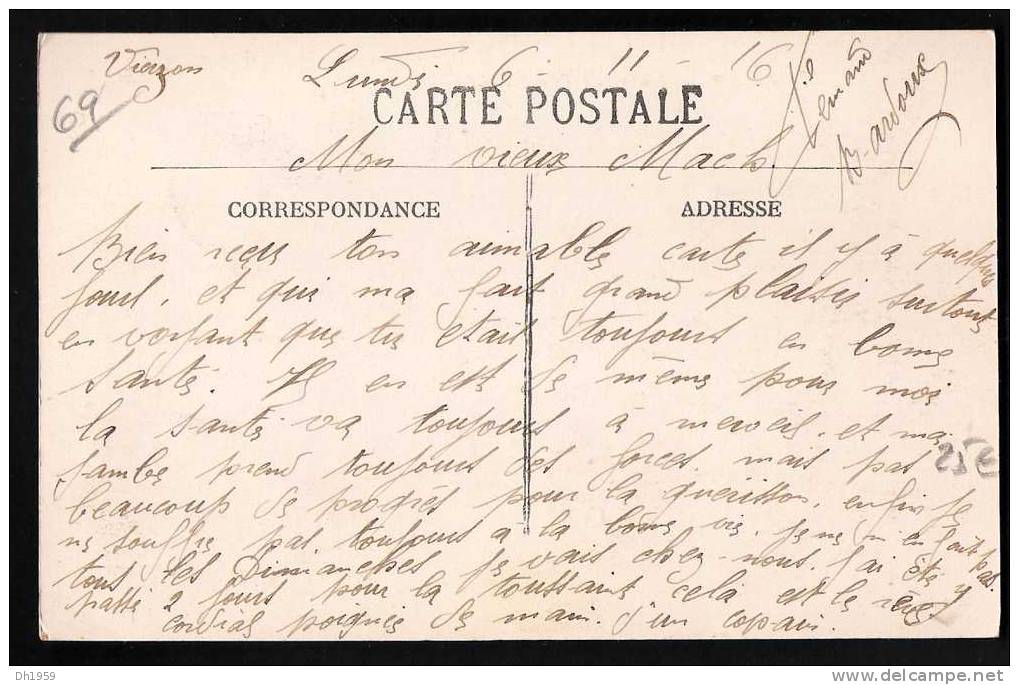 Vierzon Lundi 6 11 16
69
CARTE POSTALE
Fernand
Bardoux
Mon vieux Mach.
CORRESPONDANCE ADRESSE
Bien reçu ton aimable carte il y à quelques
jours. et qui ma fait grand plaisir surtout
en voyant que tu etait toujours en bonne
Santé. Il en est de même pour moi
la santé va toujours à merveil. et ma
jambe prend toujours des forces. mais pas
25 €
beaucoup de progrès pour la guerisson, enfin je
ne souffre pas. toujours a la bonne vie. je ne m'en fait pas.
tous les Dimanches je vais chez-nous. j'ai été y
passé 2 jours pour la toussaint cela est le rêve
cordial poignée de main. d'un copain.
Dh1959
www.delcampe.net